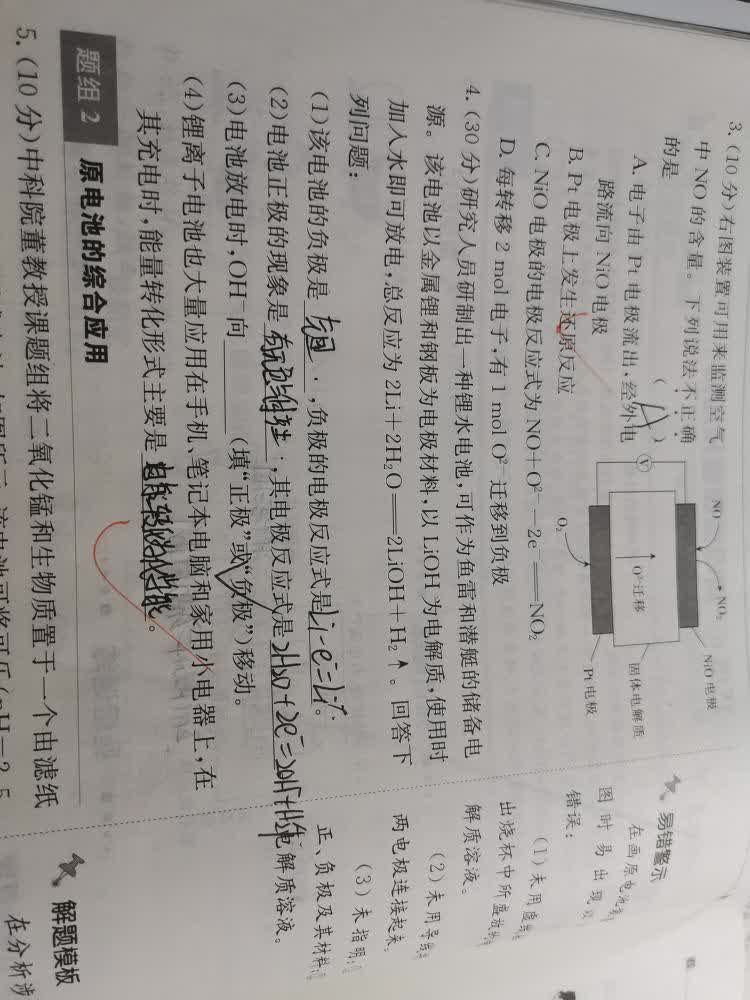 3. (10 分)右图装置可用来监测空气
中 NO 的含量。下列说法不正确
的是 ( A )
A. 电子由 Pt 电极流出,经外电
路流向 NiO 电极
B. Pt 电极上发生还原反应
C. NiO 电极的电极反应式为 NO+O²⁻-2e⁻══NO₂
D. 每转移 2 mol 电子,有 1 mol O²⁻ 迁移到负极
NO
NO₂
NiO 电极
V
O²⁻迁移
固体电解质
O₂
Pt 电极
4. (30 分)研究人员研制出一种锂水电池,可作为鱼雷和潜艇的储备电
源。该电池以金属锂和钢板为电极材料,以 LiOH 为电解质,使用时
加入水即可放电,总反应为 2Li+2H₂O══2LiOH+H₂↑。回答下
列问题:
(1)该电池的负极是,负极的电极反应式是Li-e⁻=Li⁺。
(2)电池正极的现象是有气泡,其电极反应式是2H₂O+2e⁻=2OH⁻+H₂↑
(3)电池放电时,OH⁻向(填“正极”或“负极”)移动。
(4)锂离子电池也大量应用在手机、笔记本电脑和家用小电器上,在
其充电时,能量转化形式主要是电能转化化学能。
题组 2 原电池的综合应用
5. (10 分)中科院董教授课题组将二氧化锰和生物质置于一个由滤纸
易错警示
在画原电池
图时易出现
错误:
(1)未用
出烧杯中所盛
解质溶液。
(2)未用导
两电极连接起来。
(3)未指明
正、负极及其材料
电解质溶液。
解题模板
在分析涉